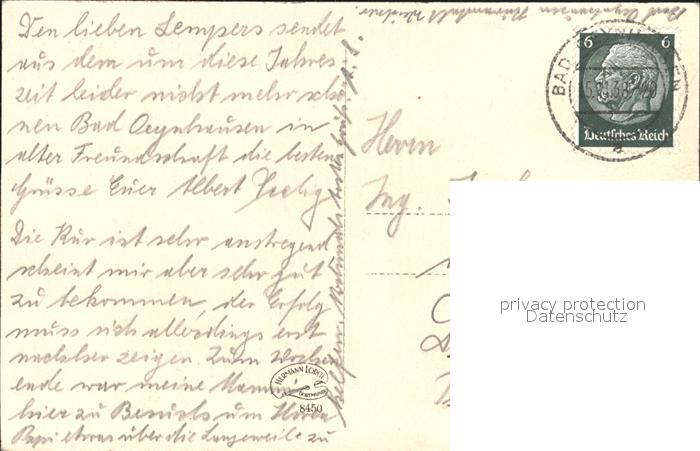 Den lieben Lempers sendet
aus dem um diese Jahres
zeit leider nicht mehr schö
nen Bad Oeynhausen in
alter Freundschaft die besten
Grüsse Euer Albert
Die Kur ist sehr anstregend
scheint mir aber sehr gut
zu bekommen, der Erfolg
muss sich allerdings erst
nachher zeigen. Zum Wochen
ende war meine Mamma
hier zu Besuch um ihrem
Papi etwas über die Langeweile zu
helfen. Nochmals herzl. Grüsse A. S.
Bad Oeynhausen
Herrn
Ing.
BAD OEYNHAUSEN
6 6
Deutsches Reich
HERMANN LORCH
DORTMUND
8450
privacy protection
Datenschutz